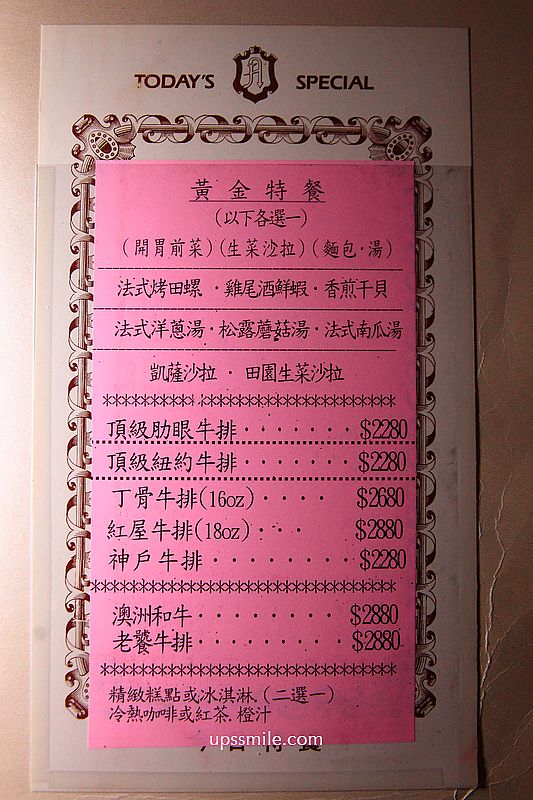 TODAY'S SPECIAL
黃金特餐
(以下各選一)
(開胃前菜)(生菜沙拉)(麵包·湯)
法式烤田螺·雞尾酒鮮蝦·香煎干貝
法式洋蔥湯·松露蘑菇湯·法式南瓜湯
凱薩沙拉·田園生菜沙拉
***************************
頂級肋眼牛排·······$2280
頂級紐約牛排·······$2280
丁骨牛排(16oz)····$2680
紅屋牛排(18oz)···$2880
神戶牛排········$2280
***************************
澳洲和牛·········$2880
老饕牛排·········$2880
***************************
精緻糕點或冰淇淋.(二選一)
冷熱咖啡或紅茶.橙汁
upssmile.com